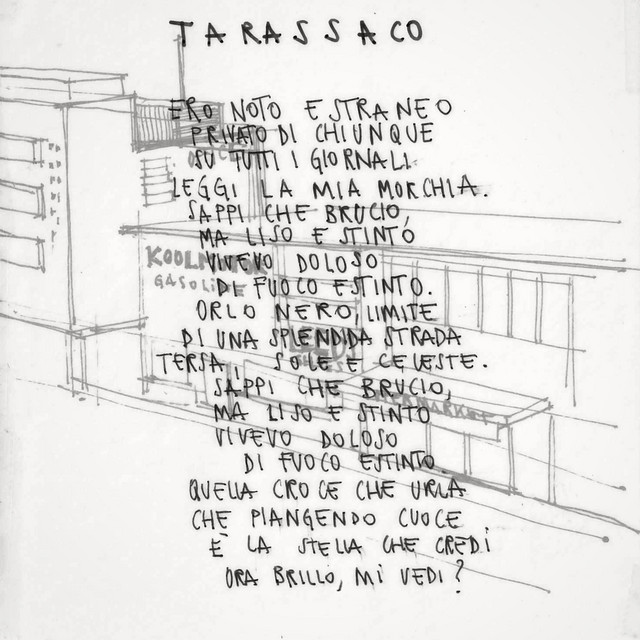 TARASSACO
ERO NOTO E STRANEO
PRIVATO DI CHIUNQUE
SU TUTTI I GIORNALI
LEGGI LA MIA MORCHIA.
SAPPI CHE BRUCIO,
MA LISO E STINTO
VIVEVO DOLOSO
DI FUOCO ESTINTO.
ORLO NERO, LIMITE
DI UNA SPLENDIDA STRADA
TERSA, SOLE E CELESTE.
SAPPI CHE BRUCIO,
MA LISO E STINTO
VIVEVO DOLOSO
DI FUOCO ESTINTO.
QUELLA CROCE CHE URLA
CHE PIANGENDO CUOCE
È LA STELLA CHE CREDI
ORA BRILLO, MI VEDI?
GASOLINE